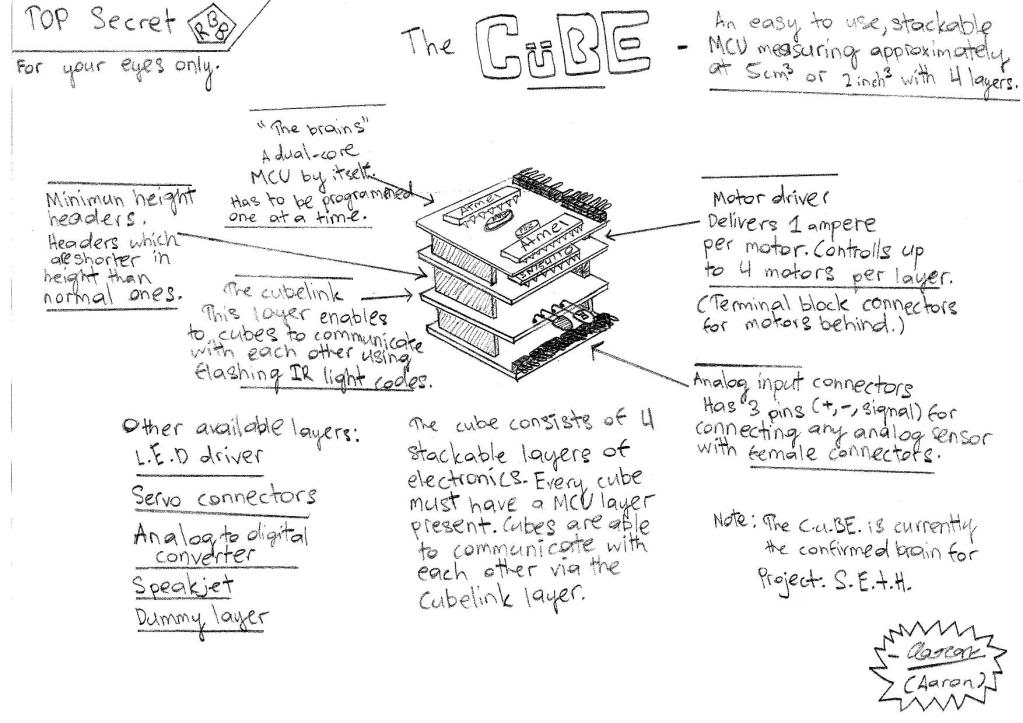 TOP Secret
RGB
For your eyes only.
The CüBE -
An easy to use, stackable
MCU measuring approximately
at 5cm³ or 2inch³ with 4 layers.
"The brains"
A dual-core
MCU by itself.
Has to be programmed
one at a time.
Minimun height
headers.
Headers which
are shorter in
height than
normal ones.
The cubelink
This layer enables
to cubes to communicate
with each other using
flashing IR light codes.
Atmel
Atmel
Motor driver
Delivers 1 ampere
per motor. Controlls up
to 4 motors per layer.
(Terminal block connectors
for motors behind.)
Analog input connectors
Has 3 pins (+,-,signal) for
connecting any analog sensor
with female connectors.
Other available layers:
L.E.D driver
Servo connectors
Analog to digital
converter
Speakjet
Dummy layer
The cube consists of 4
stackable layers of
electronics. Every cube
must have a MCU layer
present. Cubes are able
to communicate with
each other via the
Cubelink layer.
Note: The C.u.BE. is currently
the confirmed brain for
Project: S.E.t.H.
(Aaron)